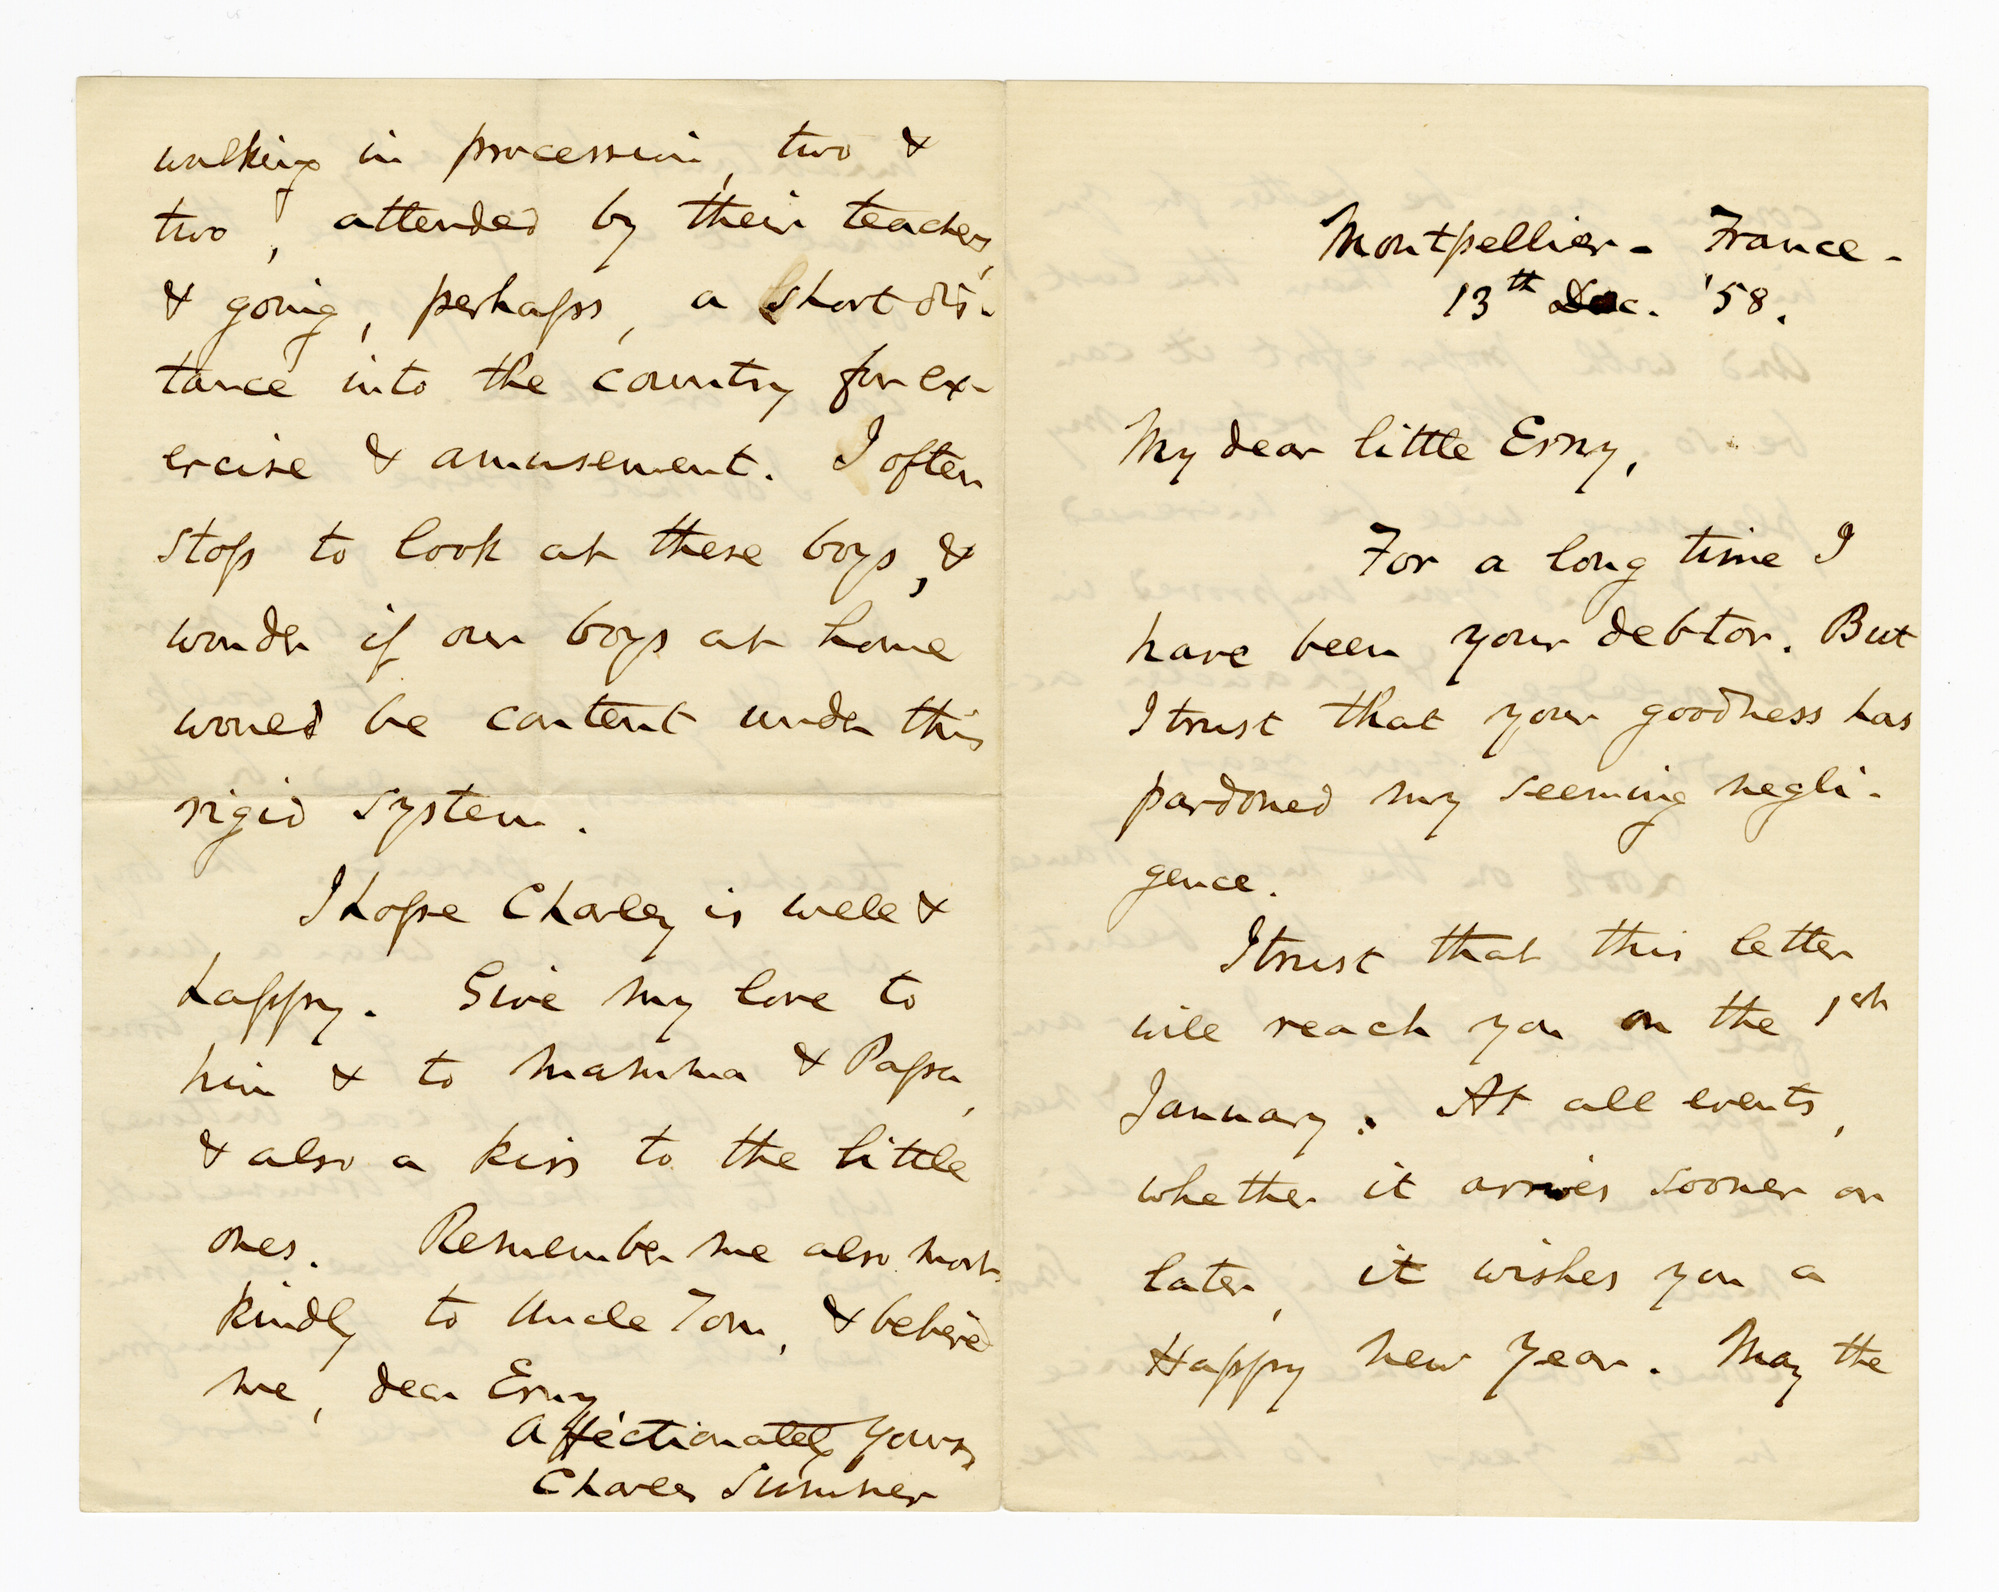 Montpellier - France -
13th Dec. '58.
My dear little Erny,
For a long time I
have been your debtor. But
I trust that your goodness has
pardoned my seeming negli-
gence.
I trust that this letter
will reach you on the 1st
January. At all events,
whether it arrives sooner or
later, it wishes you a
Happy New Year. May the
walking in procession, two &
two, attended by their teachers,
& going, perhaps, a short dis-
tance into the country for ex-
ercise & amusement. I often
stop to look at these boys, &
wonder if our boys at home
would be content under this
rigid system.
I hope Charley is well &
happy. Give my love to
him & to mamma & Papa,
& also a kiss to the little
ones. Remember me also most
kindly to Uncle Tom, & believe
me, dear Erny
Affectionately Yours,
Charles Sumner